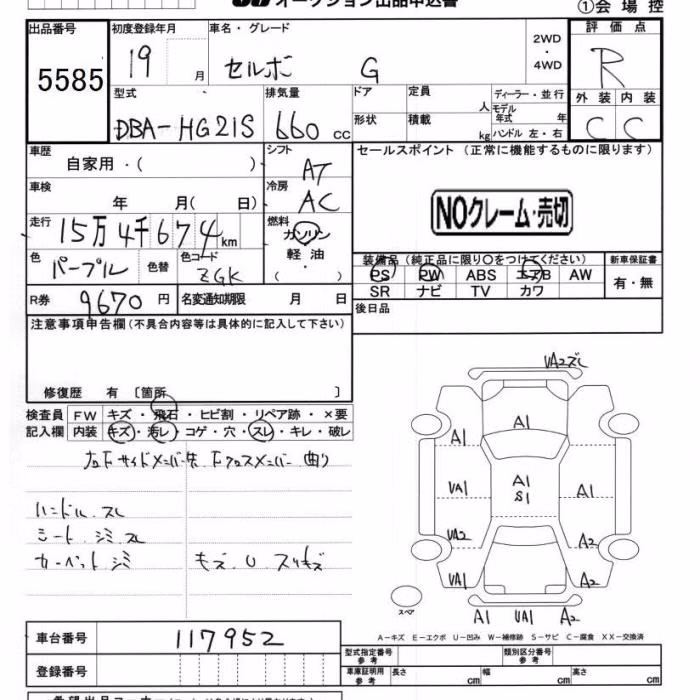 オークション出品申込書
①会場控
出品番号 初度登録年月 車名・グレード 2WD・4WD 評価点
5585 19 月 セルボ G R
型式 排気量 ドア 定員 人 ディーラー・並行 外装 内装
DBA-HG21S 660 cc 形状 積載 kg モデル年式 年 ハンドル 左・右 C C
車歴 自家用・( ) シフト AT セールスポイント (正常に機能するものに限ります)
車検 年 月( 日) 冷房 AC
NOクレーム・売切
走行 15万4千674km 燃料 ガソリン 軽油 ・ ( )
色 パープル 色替 色コード ZGK
装備品(純正品に限り○をつけてください) 新車保証書
PS PW ABS エアB AW 有・無
SR ナビ TV カワ
R券 9670円 名変通知期限 月 日 後日品
注意事項申告欄(不具合内容等は具体的に記入して下さい)
修復歴 有 〔箇所 〕
検査員 FW キズ・飛石・ヒビ割・リペア跡・×要
記入欄 内装 キズ・汚レ・コゲ・穴・スレ・キレ・破レ
左F サイドメンバー先 Fクロスメンバー 曲り
ハンドル スレ
シート シミ スレ
カーペット シミ キズ U スリキズ
VA2ズレ
A1
A1
VA1 A1 S1 A1
VA2 A2
VA1 A2
スペア
A1 VA1 A2
A-キズ E-エクボ U-凹み W-補修跡 S-サビ C-腐食 XX-交換済
車台番号 117952
登録番号
型式指定番号 参考 類別区分番号 参考
車庫証明用 参考 長さ cm 幅 cm 高さ cm